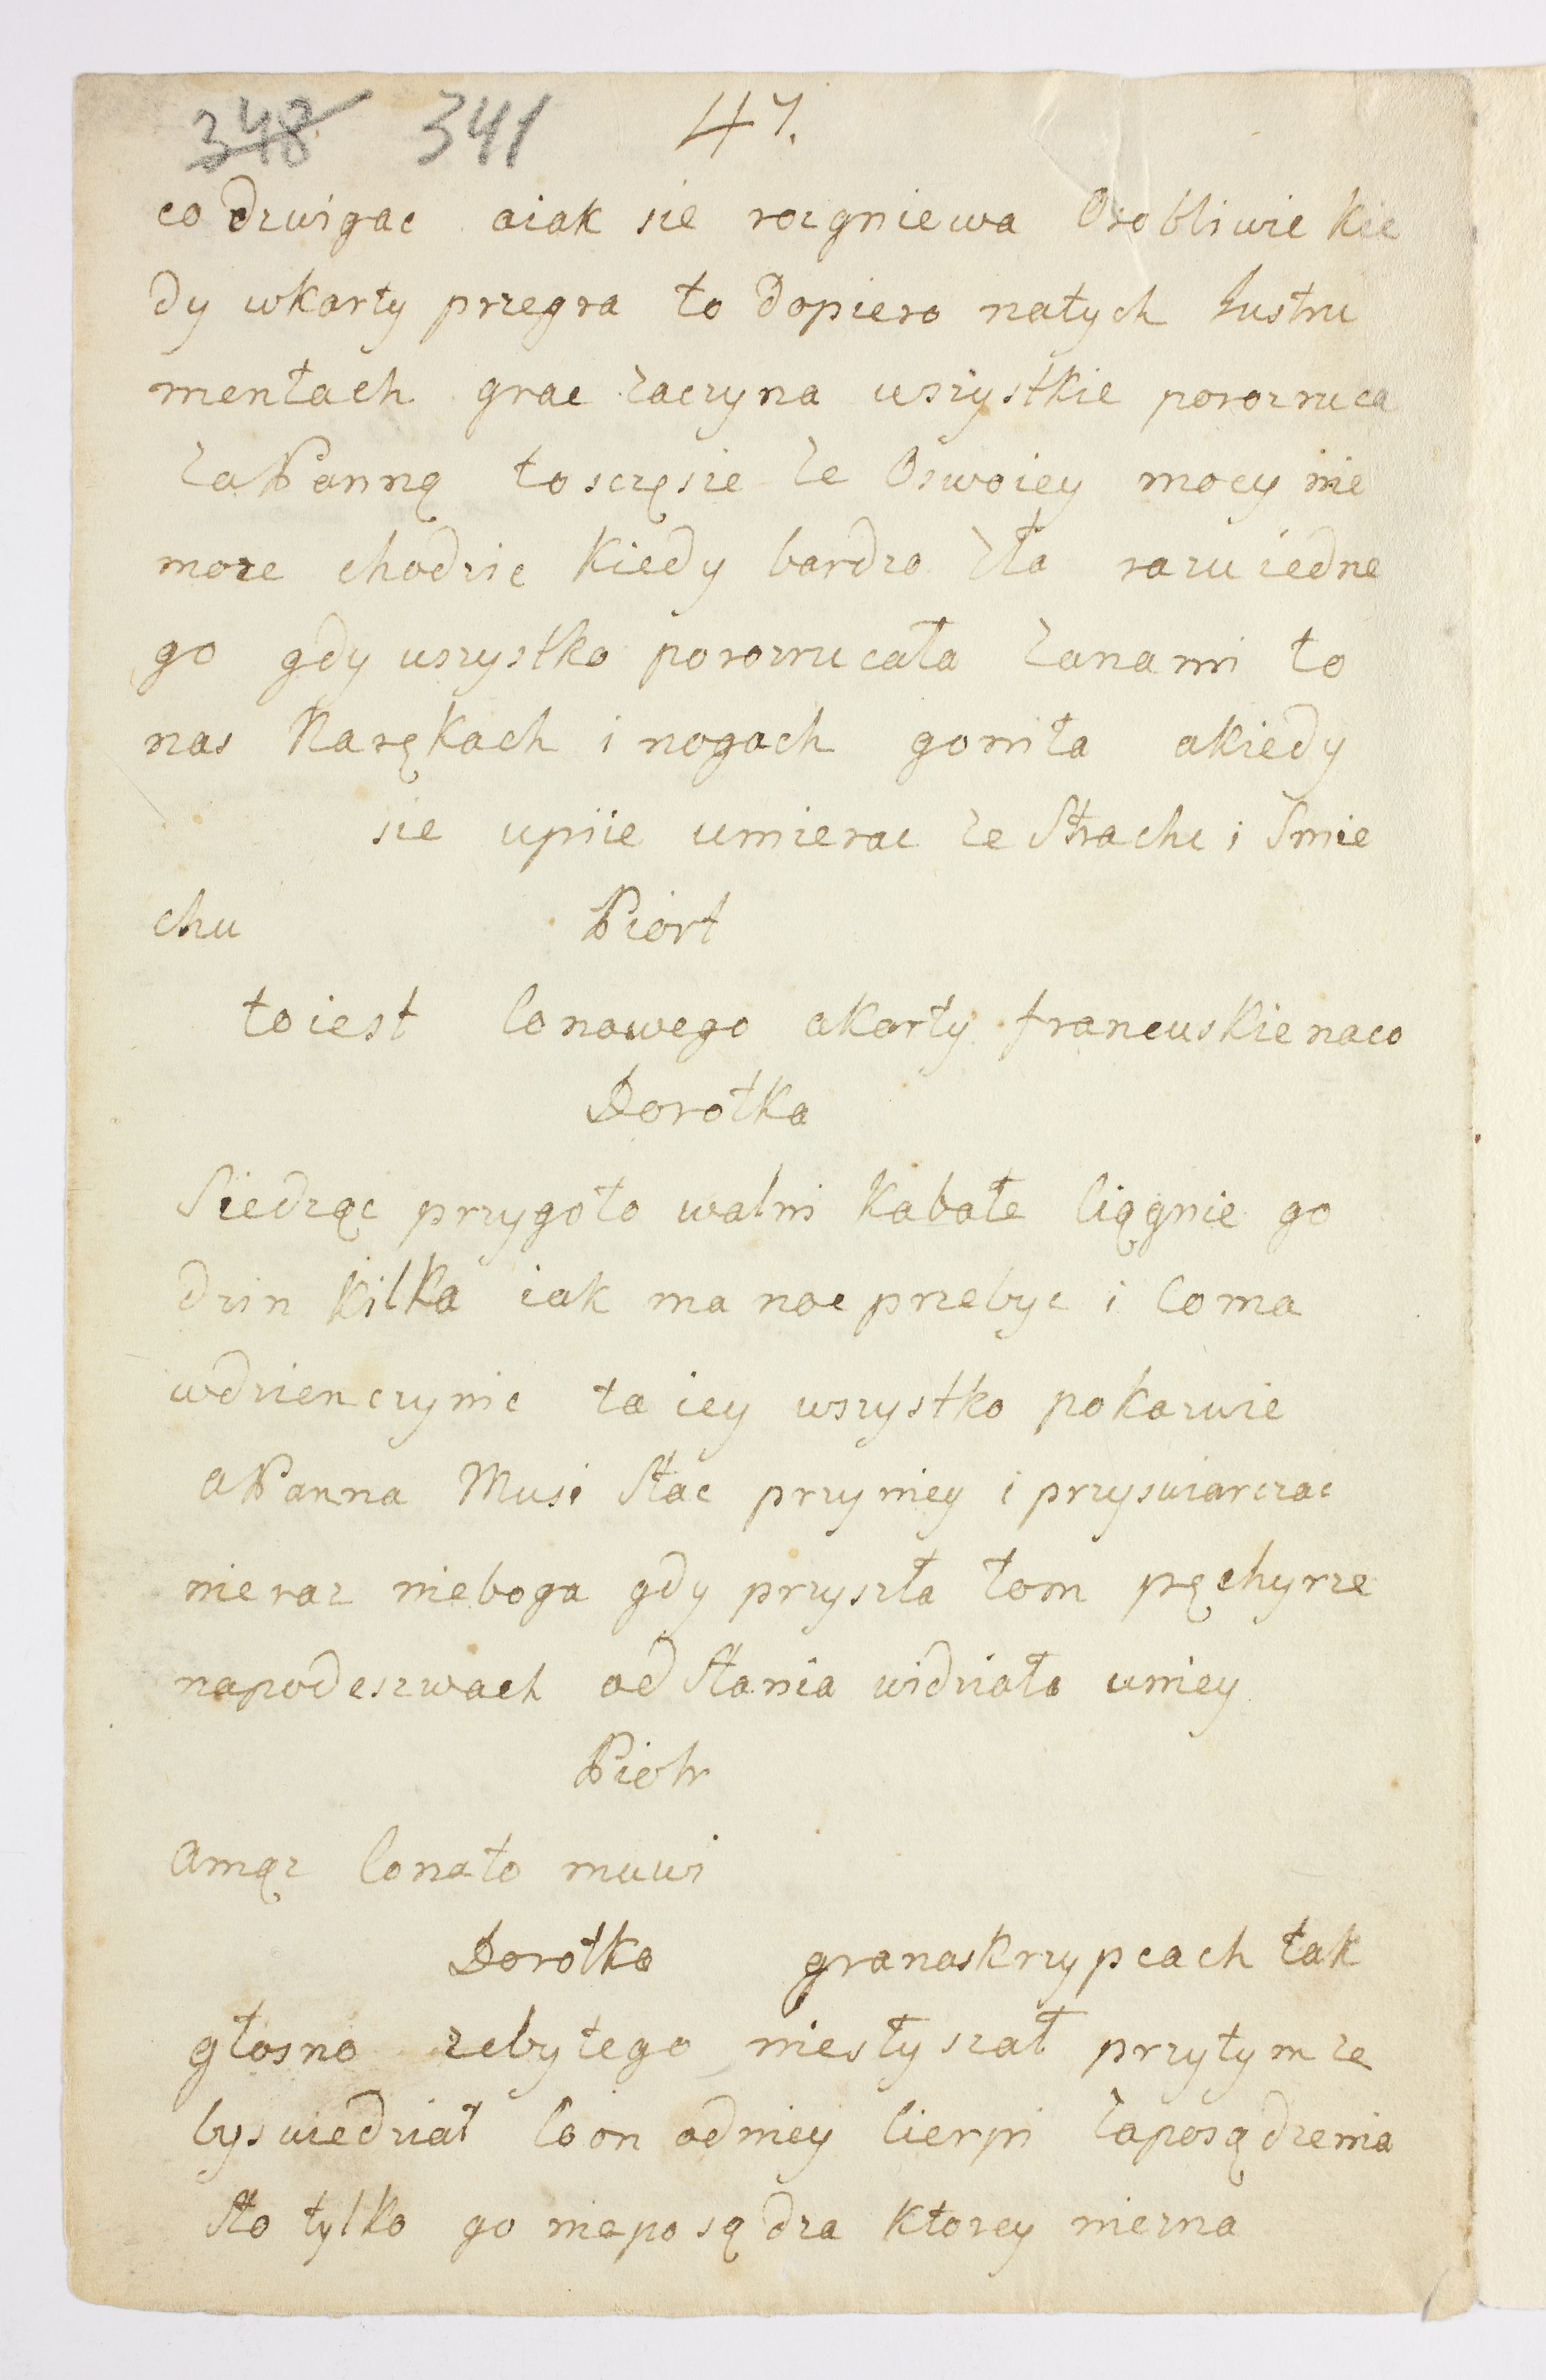 348 341 47.
co dzwigac aiak sie rozgniewa Osobliwie kie
dy wkarty przegra to dopiero natych Instru
mentach grac zaczyna wszystkie porozruca
zaPanną to sczęsie ze Oswoiey mocy nie
moze chodzic kiedy bardzo zła razu iedne
go gdy uszystko porozrucała zanami to
nas Narękach i nogach goniła akiedy
sie upiie umierac ze Strachu i Smie
chu Piort
toiest Conowego akarty francuskie naco
Dorotka
Siedząc przygotowalni Kabałe Ciągnie go
dzin kilka iak ma noc przebyc i Coma
wdzien czynic ta iey wszystko pokazuie
aPanna Musi Stac przyniey i przyswiarczac
nieraz nieboga gdy przyszła tom pęchyrze
napodeszwach od Stania widziała uniey
Piotr
amąz Conato muwi
Dorotka granaskrzypcach tak
głosno zebytego niesłyszał przytym ze
byswiedział Coon odniey Cierpi zaposądzenia
Sto tylko go nieposądza ktorey niezna